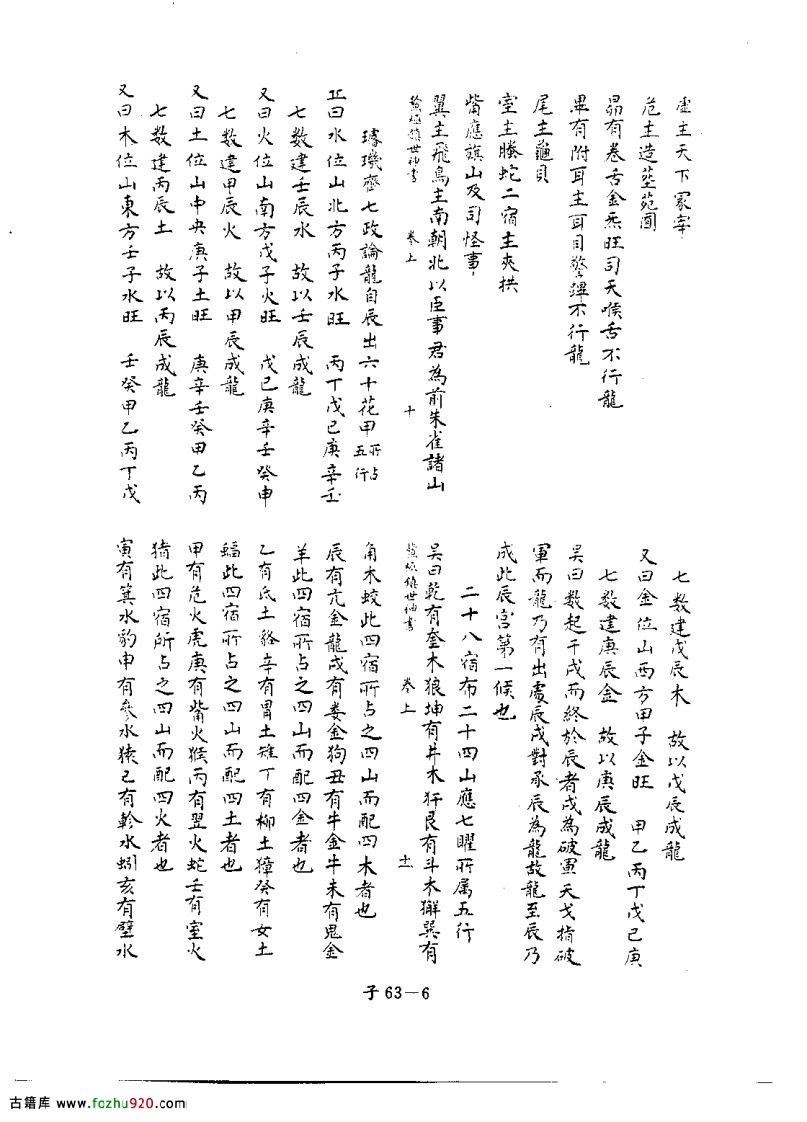 虚主天下冢宰
危主造茔苑圃
昴有卷舌金炁旺司天喉舌不行龍
畢有附耳主耳目警蹕不行龍
尾主龜貝
室主螣蛇二宿主夾拱
觜應旗山及司怪事
翼主飛鳥主南朝北以臣事君為前朱雀諸山
鎮世神書 卷上 十
璿璣齊七政論龍自辰出六十花甲所占五行
正曰水位山北方丙子水旺 丙丁戊己庚辛壬
七数建壬辰水 故以壬辰成龍
又曰火位山南方戊子火旺 戊己庚辛壬癸甲
七数建甲辰火 故以甲辰成龍
又曰土位山中央庚子土旺 庚辛壬癸甲乙丙
七数建丙辰土 故以丙辰成龍
又曰木位山東方壬子水旺 壬癸甲乙丙丁戊
七数建戊辰木 故以戊辰成龍
又曰金位山西方甲子金旺 甲乙丙丁戊己庚
七数建庚辰金 故以庚辰成龍
吴曰数起于戌而終於辰者戌為破軍天戈指破
軍而龍乃有出處辰戌對承辰為龍故龍至辰乃
成此辰宫第一候也
二十八宿布二十四山應七曜所属五行
吴曰乾有奎木狼坤有井木犴艮有斗木獬巽有
鎮世神書 卷上 十一
角木蛟此四宿所占之四山而配四木者也
辰有亢金龍戌有娄金狗丑有牛金牛未有鬼金
羊此四宿所占之四山而配四金者也
乙有氐土貉辛有胃土雉丁有柳土獐癸有女土
蝠此四宿所占之四山而配四土者也
甲有尾火虎庚有觜火猴丙有翌火蛇壬有室火
猪此四宿所占之四山而配四火者也
寅有箕水豹申有參水猿巳有軫水蚓亥有壁水
子 63—6
古籍库 www.fozhu920.com